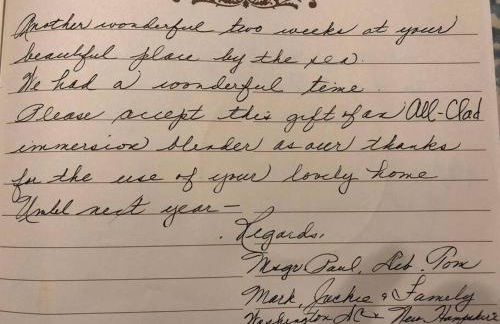 Another wonderful two weeks at your
beautiful place by the sea.
We had a wonderful time.
Please accept this gift of an All-Clad
immersion blender as our thanks
for the use of your lovely home
Until next year—
Regards,
Msgr Paul, Deb, Tom
Mark, Jackie & Family
Washington DC & New Hampshire